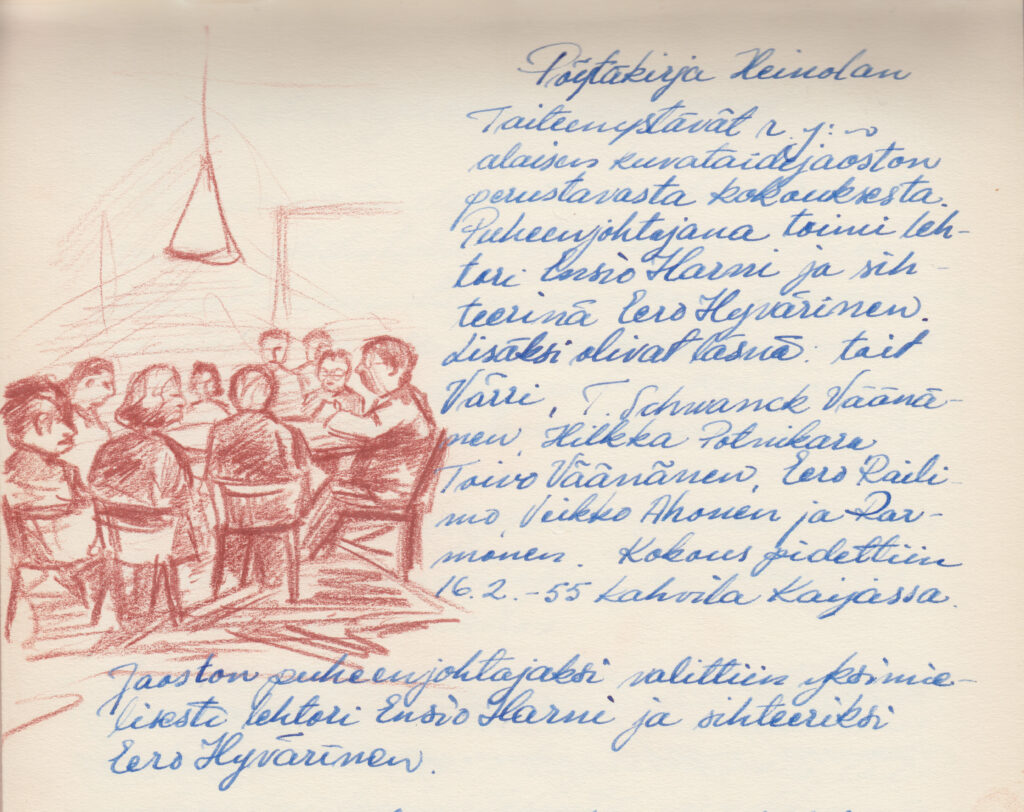 Pöytäkirja Heinolan
Taiteenystävät r.y:n
alaisen kuvataidejaoston
perustavasta kokouksesta.
Puheenjohtajana toimi leh-
tori Ensio Harni ja sih-
teerinä Eero Hyvärinen.
Lisäksi olivat läsnä: tait
Värri, T. Schwanck Väänä-
nen, Hilkka Potnikara,
Toivo Väänänen, Eero Raili-
mo, Veikko Ahonen ja Rar-
monen. Kokous pidettiin
16.2.-55 kahvila Kaijassa.
Jaoston puheenjohtajaksi valittiin yksimie-
lisesti lehtori Ensio Harni ja sihteeriksi
Eero Hyvärinen.